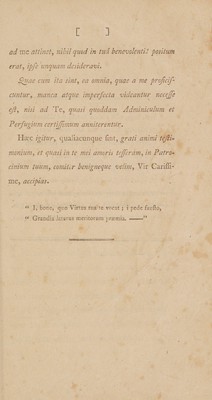 [ ]
ad me attinet, nihil quod in tuâ benevolentiâ positum
erat, ipse unquam desideravi.
Quæ cum ita sint, ea omnia, quæ a me proficis-
cuntur, manca atque imperfecta videantur necesse
est, nisi ad Te, quasi quoddam Adminiculum et
Perfugium certissimum anniterentur.
Hæc igitur, qualiacunque sint, grati animi testi-
monium, et quasi in te mei amoris tesseram, in Patro-
cinium tuum, comiter benigneque velim, Vir Carissi-
me, accipias.
“ I, bone, quo Virtus tua te vocat; i pede fausto,
“ Grandia laturus meritorum præmia. ——”